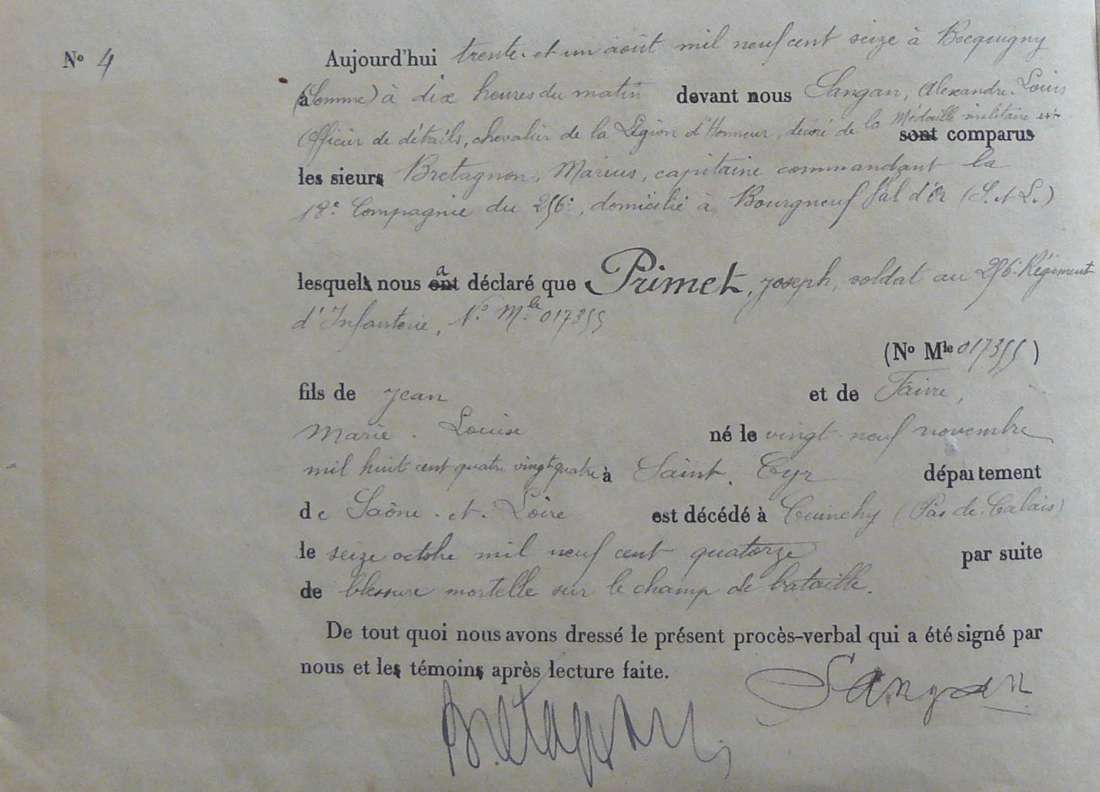 N° 4
Aujourd'hui trente et un août mil neuf cent seize à Bocquigny
(Somme) à dix heures du matin devant nous Sangan, Alexandre Louis
Officier de détails, chevalier de la Légion d'Honneur, décoré de la Médaille militaire est
sont comparus
les sieurs Bretagnon, Marius, capitaine commandant la
18e Compagnie du 256e, domicilié à Bourgneuf Val d'Or (S. et L.)
lesquels nous a ont déclaré que Primet, Joseph, soldat au 256e Régiment
d'Infanterie, N° Mle 017355
(N° Mle 017355)
fils de Jean et de Faivre,
Marie Louise né le vingt neuf novembre
mil huit cent quatre vingt quatre à Saint Cyr département
de Saône et Loire est décédé à Cuinchy (Pas de Calais)
le seize octobre mil neuf cent quatorze par suite
de blessure mortelle sur le champ de bataille.
De tout quoi nous avons dressé le présent procès-verbal qui a été signé par
nous et les témoins après lecture faite.
Sangan
Bretagnon